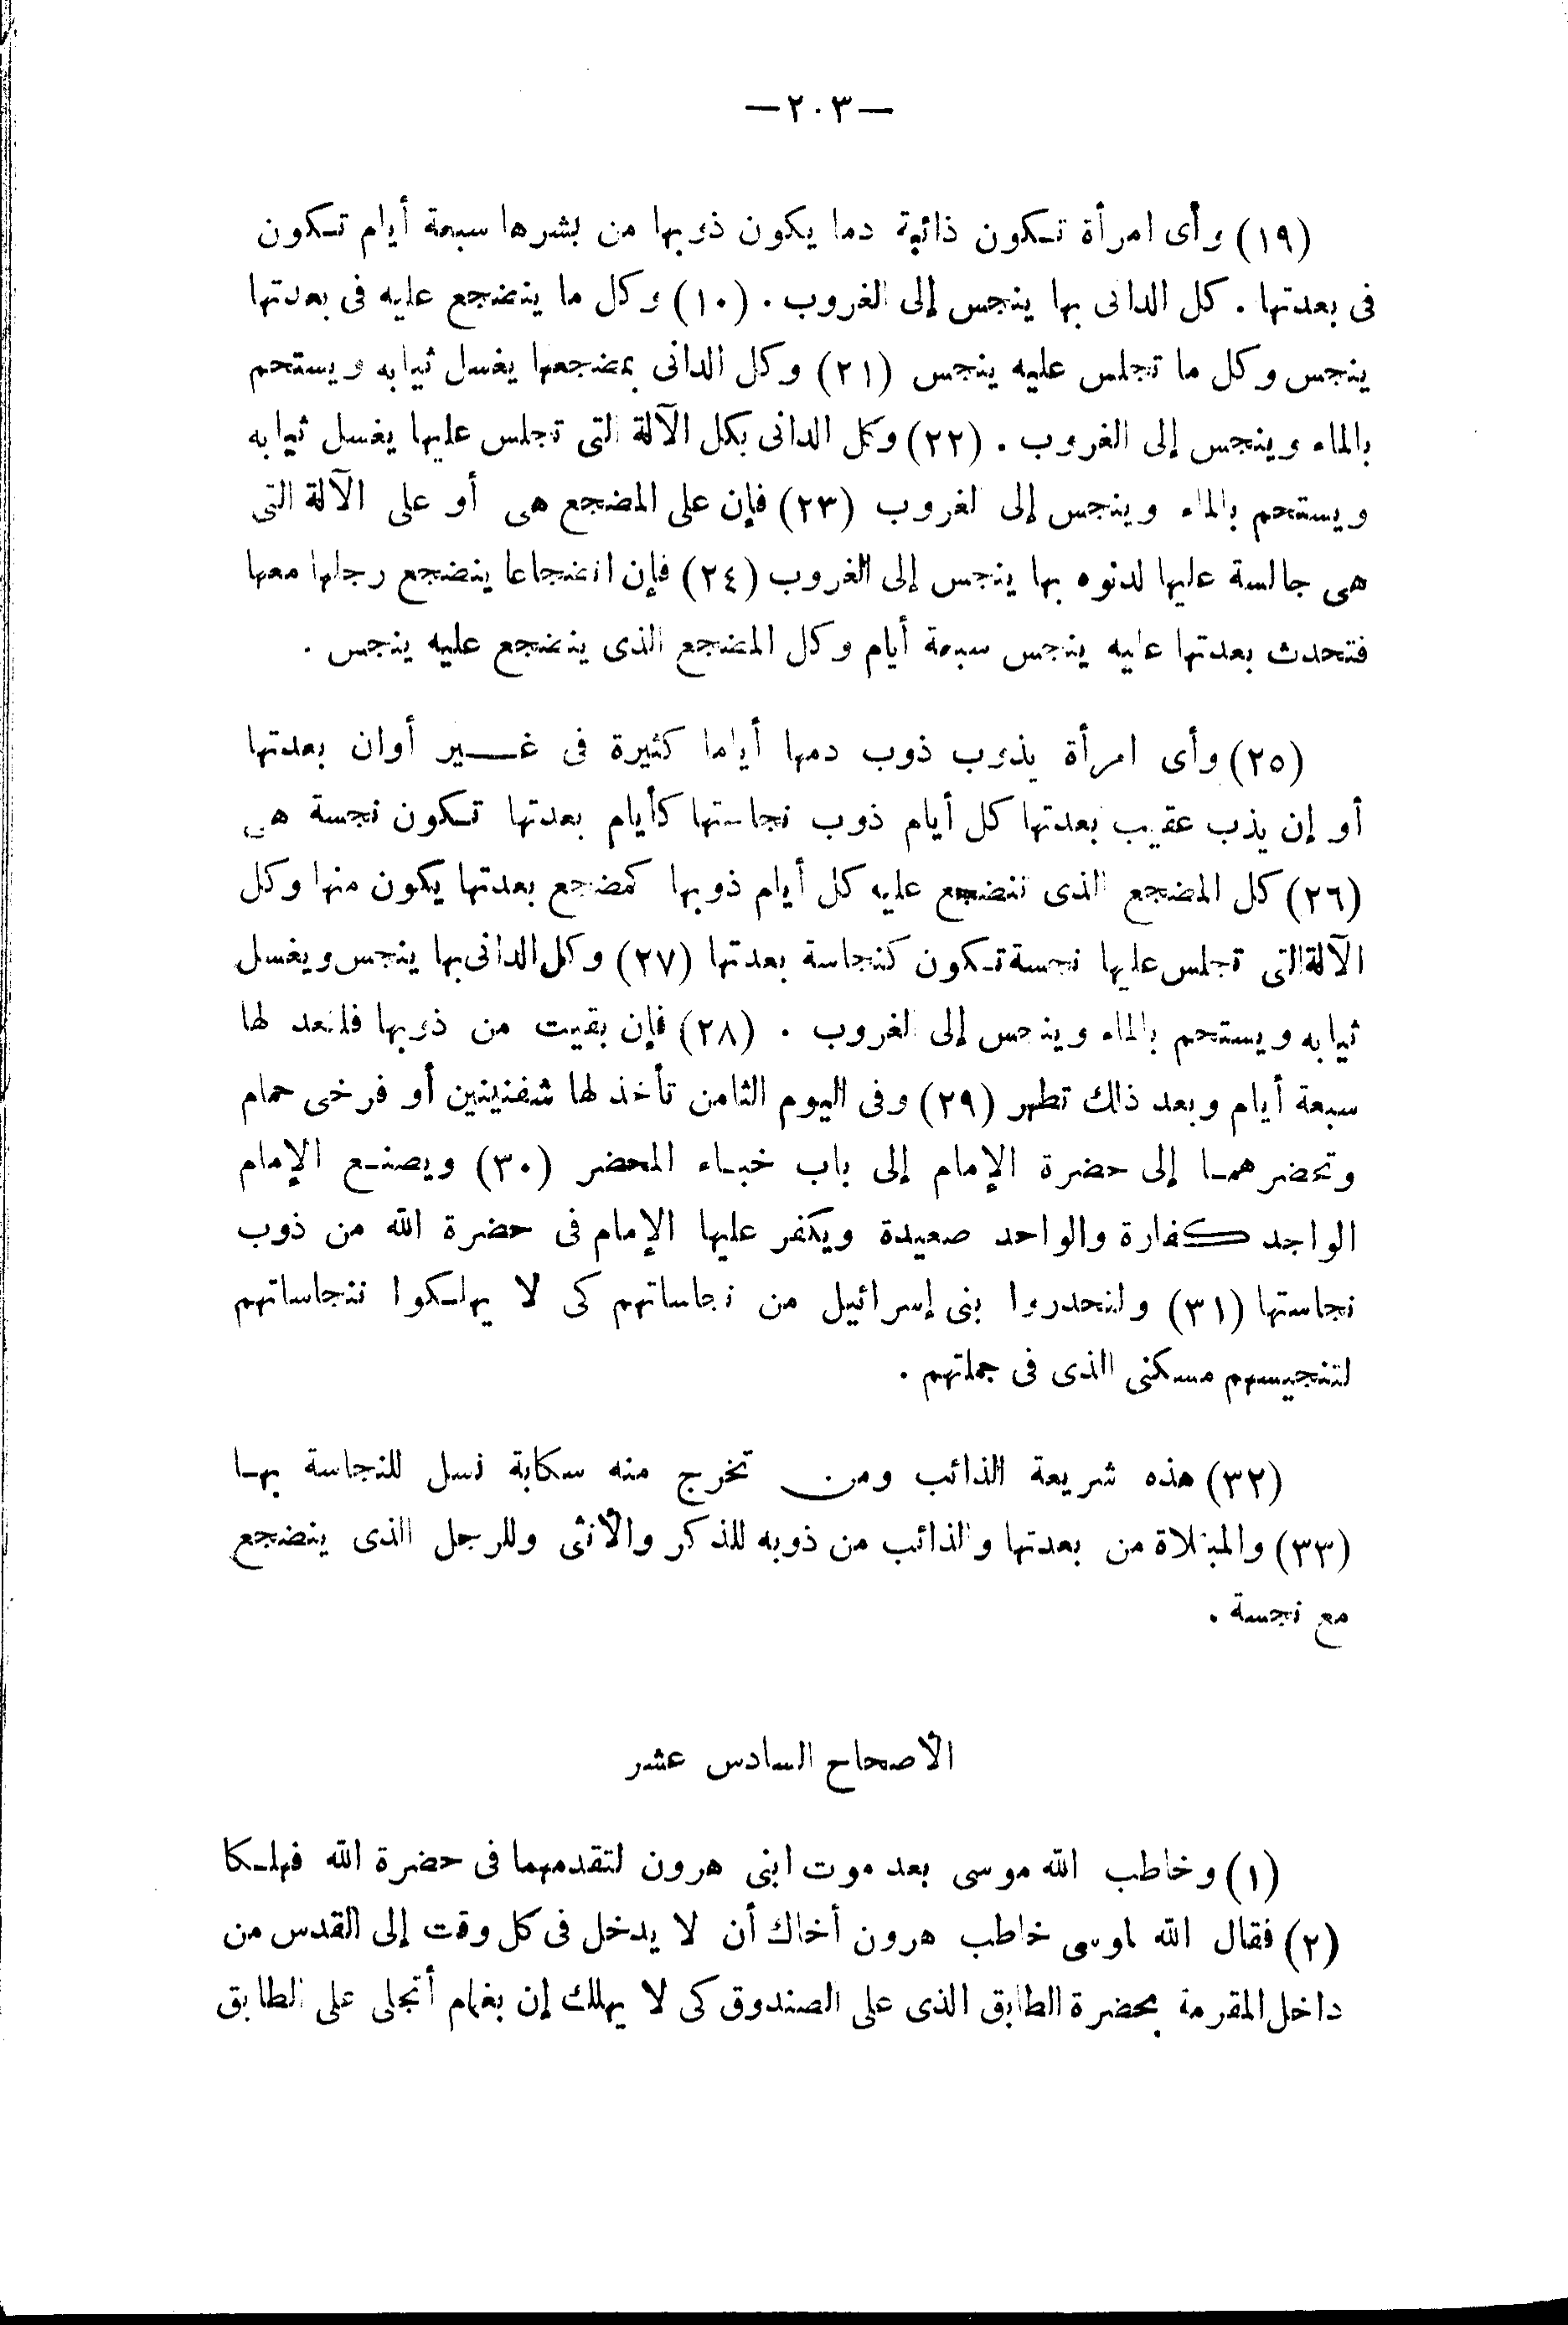 —٢٠٣—
(١٩) وأى امرأة تكون ذائبة دما يكون ذوبها من بشرها سبعة أيام تكون
فى بعدتها . كل الدانى بها ينجس إلى الغروب . (١٠) وكل ما ينضجع عليه فى بعدتها
ينجس وكل ما تجلس عليه ينجس (٢١) وكل الدانى بمضجعها يغسل ثيابه ويستحم
بالماء وينجس إلى الغروب . (٢٢) وكل الدانى بكل الآلة التى تجلس عليها يغسل ثيابه
ويستحم بالماء وينجس إلى الغروب (٢٣) فإن على المضجع هى أو على الآلة التى
هى جالسة عليها لدنوه بها ينجس إلى الغروب (٢٤) فإن انضجاعا ينضجع رجلها معها
فتحدث بعدتها عليه ينجس سبعة أيام وكل المضجع الذى ينضجع عليه ينجس .
(٢٥) وأى امرأة يذوب ذوب دمها أياما كثيرة فى غير أوان بعدتها
أو إن يذب عقيب بعدتها كل أيام ذوب نجاستها كأيام بعدتها تكون نجسة هى
(٢٦) كل المضجع الذى تنضجع عليه كل أيام ذوبها كمضجع بعدتها يكون منها وكل
الآلة التى تجلس عليها نجسة تكون كنجاسة بعدتها (٢٧) وكل الدانى بها ينجس ويغسل
ثيابه ويستحم بالماء وينجس إلى الغروب . (٢٨) فإن بقيت من ذوبها فلتعد لها
سبعة أيام وبعد ذلك تطهر (٢٩) وفى اليوم الثامن تأخذ لها شفنينين أو فرخى حمام
وتحضرهما إلى حضرة الإمام إلى باب خباء المحضر (٣٠) ويصنع الإمام
الواجد كفارة والواحد صعيدة ويكفر عليها الإمام فى حضرة الله من ذوب
نجاستها (٣١) ولتحدروا بنى إسرائيل من نجاساتهم كى لا يهلكوا بنجاساتهم
لتنجيسهم مسكنى الذى فى جملتهم .
(٣٢) هذه شريعة الذائب ومن تخرج منه سكابة نسل للنجاسة بها
(٣٣) والمبتلاة من بعدتها والذائب من ذوبه للذكر والأنثى وللرجل الذى ينضجع
مع نجسة .
الأصحاح السادس عشر
(١) وخاطب الله موسى بعد موت ابنى هرون لتقدمهما فى حضرة الله فهلكا
(٢) فقال الله لموسى خاطب هرون أخاك أن لا يدخل فى كل وقت إلى القدس من
داخل المقرمة بحضرة الطابق الذى على الصندوق كى لا يهلك إن بغمام أتجلى على الطابق